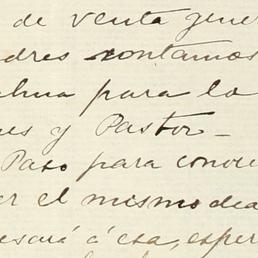 de venta gener
dres contamos
para la
es y Pastor_
Paso para conoce
er el mismo dia
esará á esa, esper